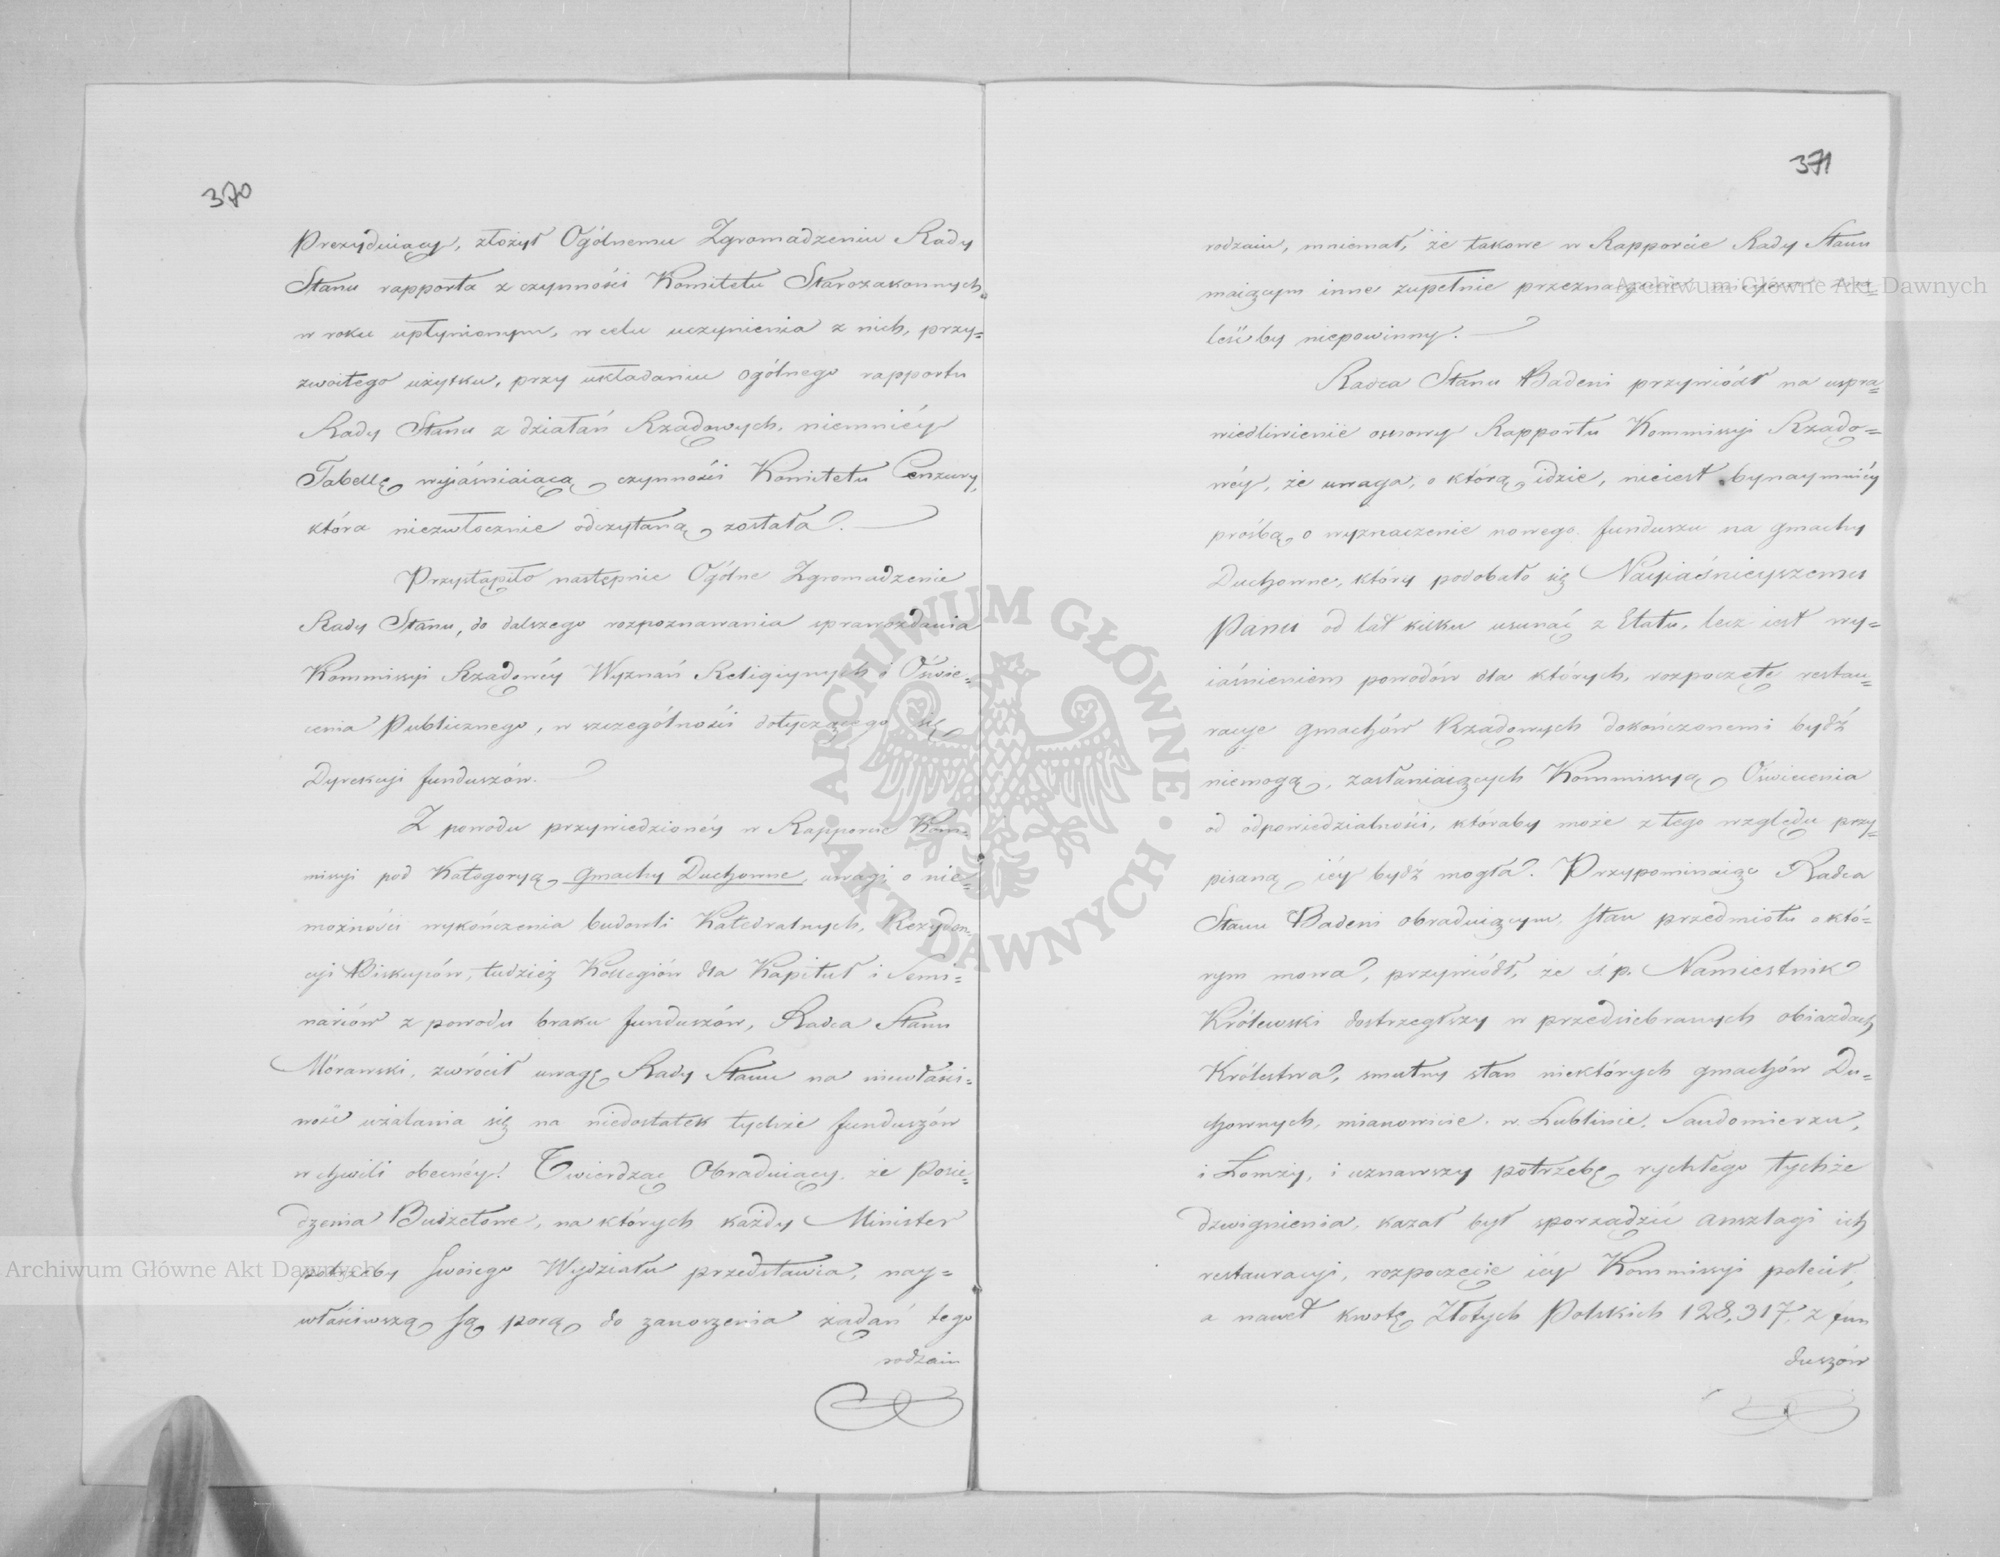 370
Prezyduiący, złożył Ogólnemu Zgromadzeniu Rady
Stanu rapporta z czynności Komitetu Starozakonnych
w roku upłynionym, w celu uczynienia z nich, przy=
zwoitego użytku, przy układaniu ogólnego rapportu
Rady Stanu z działań Rządowych, niemniéy
Tabellę wyiaśniaiącą czynności Komitetu Cenzury,
która niezwłocznie odczytaną została.
Przystąpiło następnie Ogólne Zgromadzenie
Rady Stanu, do dalszego rozpoznawania sprawozdania
Kommissyi Rządowéy Wyznań Religiynych i Oświe=
cenia Publicznego, w szczególności dotyczącego się
Dyrekcyi funduszów.
Z powodu przywiedzionéy w Rapporcie Kom=
missyi pod Kategoryą Gmachy Duchowne, uwagi o nie=
możności wykończenia budowli Katedralnych, Rezyden=
cyi Biskupów, tudzież Kollegiów dla Kapituł i Semi=
nariów z powodu braku funduszów, Radca Stanu
Morawski, zwrócił uwagę Rady Stanu na niewłaści=
wość użalania się na niedostatek tychże funduszów
w chwili obecnéy! Twierdząc Obraduiący, że Posie=
dzenia Budżetowe, na których każdy Minister
potrzeby swoiego Wydziału przedstawia, nay=
właściwszą są porą do zanoszenia żądań tego
rodzaiu
371
rodzaiu, mniemał, że takowe w Rapporcie Rady Stanu
maiącym inne zupełnie przeznaczenie, mieysca zna=
leść by niepowinny.
Radca Stanu Badeni przywiódł na uspra=
wiedliwienie osnowy Rapportu Kommissyi Rządo=
wéy, że uwaga, o którą idzie, nieiest bynaymniéy
prośbą o wyznaczenie nowego funduszu na gmachy
Duchowne, który podobało się Nayiaśnieyszemu
Panu od lat kilku usunąć z Etatu, lecz iest wy=
iaśnieniem powodów dla których, rozpoczęte restau=
racye gmachów Rządowych dokończonemi bydź
niemogą, zasłaniaiących Kommissyą Oświecenia
od odpowiedzialności, któraby może z tego względu przy=
pisaną iéy bydź mogła. Przypominaiąc Radca
Stanu Badeni obraduiącym, stan przedmiotu o któ=
rym mowa, przywiódł, że ś.p. Namiestnik
Królewski dostrzegłszy w przedsiebranych obiazdach
Królestwa, smutny stan niektórych gmachów Du=
chownych, mianowicie w Lublinie, Sandomierzu,
i Łomży, i uznawszy potrzebę rychłego tychże
dzwignienia, kazał był sporządzić anszlagi ich
restauracyi, rozpoczęcie iéy Kommissyi polecił,
a nawet kwotę Złotych Polskich 128,317, z fun
duszów
ARCHIWUM GŁÓWNE AKT DAWNYCH
Archiwum Główne Akt Dawnych
Archiwum Główne Akt Dawnych